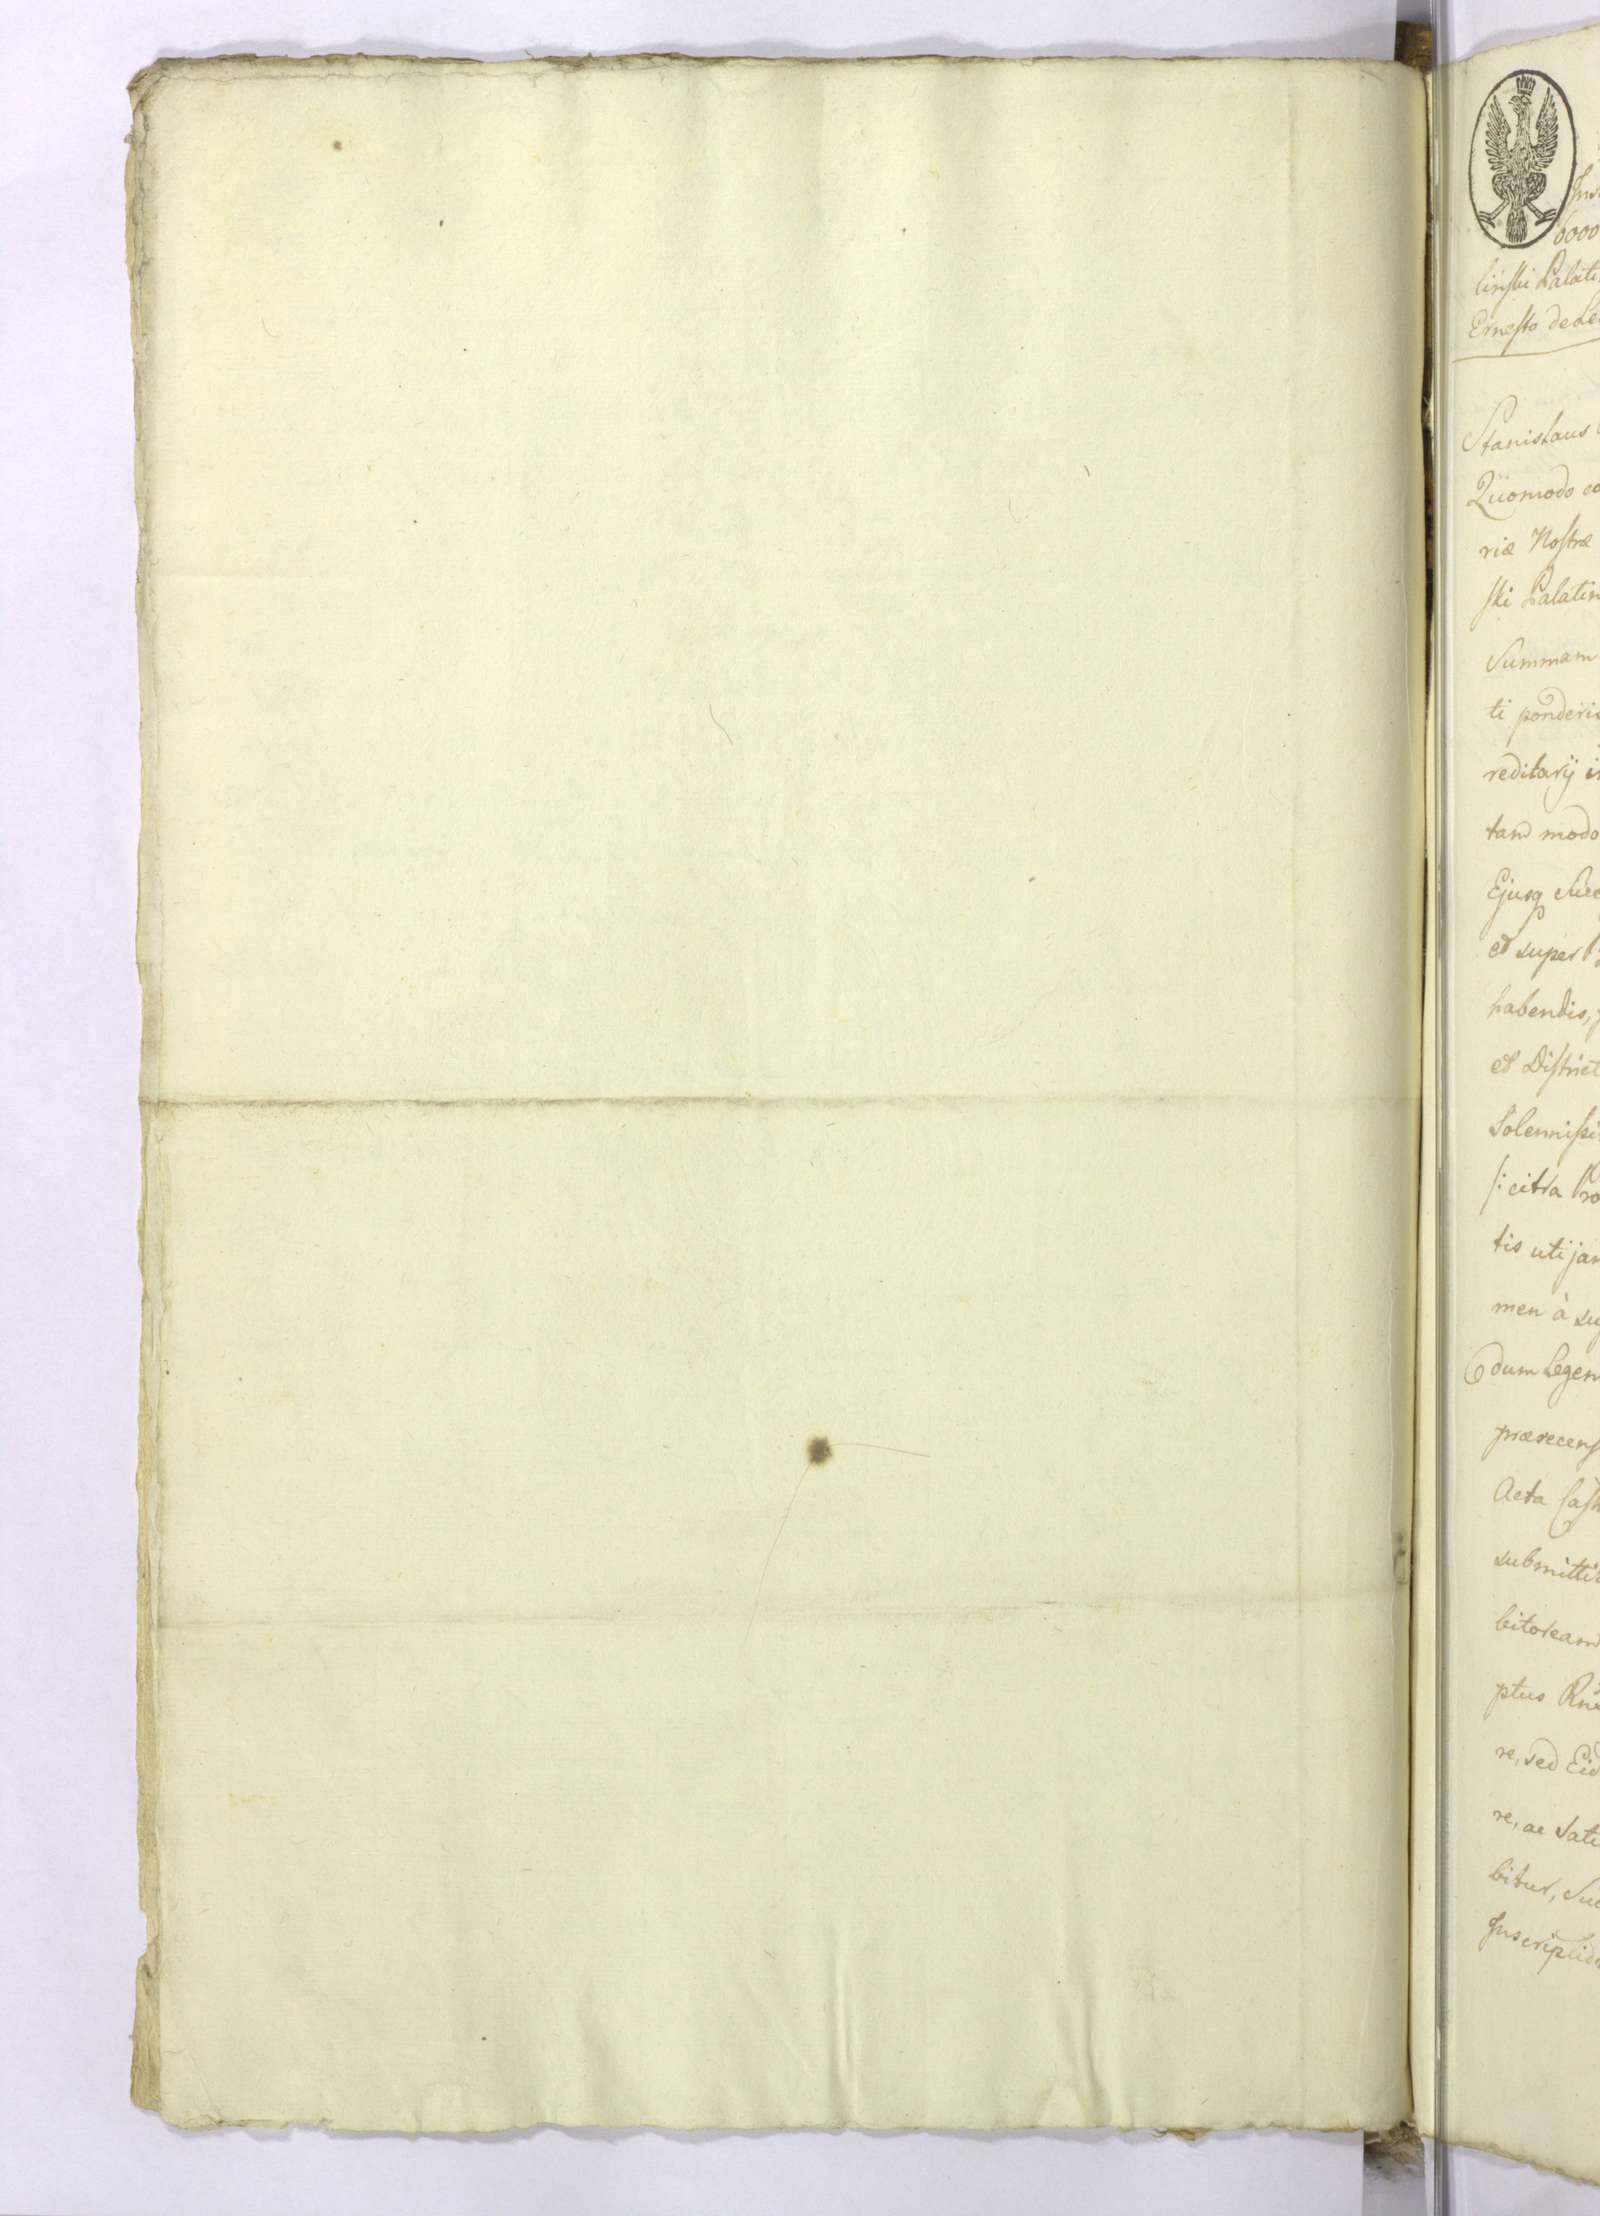 Ins
6000
linski Palati
Ernesto de Le
Stanislaus
Quomodo co
riæ Nostræ
ski Palatin
Summam
ti ponderis
reditarij i
tam modo
Ejusq Suc
et super
habendis,
et District
Solennissi
/: citra Pro
tis uti jam
men à su
dum Legem
præecens
Acta Cast
submitti
bitoream
ptus
re, sed Eid
re, ac Sati
bitur, Suc
Inscription